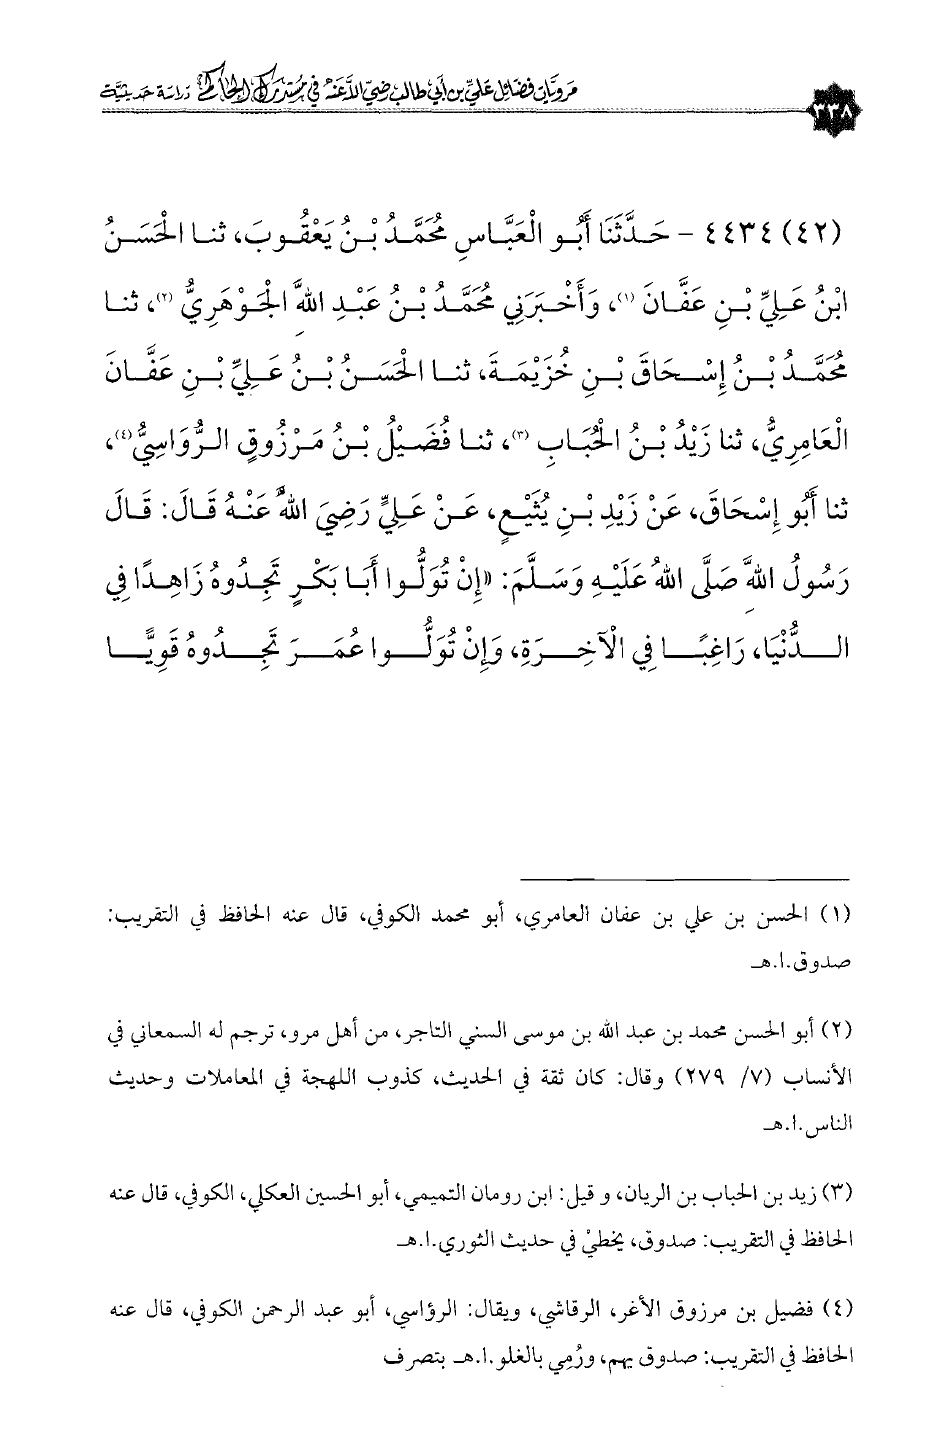 مرويات فضائل علي بن أبي طالب رضي الله عنه في مستدرك الحاكم دراسة حديثية
٢٣٨
(٤٢) ٤٤٣٤ - حَدَّثَنَا أَبُو الْعَبَّاسِ مُحَمَّدُ بْنُ يَعْقُوبَ، ثنا الْحَسَنُ
ابْنُ عَلِيِّ بْنِ عَفَّانَ (١)، وَأَخْبَرَنِي مُحَمَّدُ بْنُ عَبْدِ اللهِ الْجَوْهَرِيُّ (٢)، ثنا
مُحَمَّدُ بْنُ إِسْحَاقَ بْنِ خُزَيْمَةَ، ثنا الْحَسَنُ بْنُ عَلِيِّ بْنِ عَفَّانَ
الْعَامِرِيُّ، ثنا زَيْدُ بْنُ الْحُبَابِ (٣)، ثنا فُضَيْلُ بْنُ مَرْزُوقٍ الرُّوَاسِيُّ (٤)،
ثنا أَبُو إِسْحَاقَ، عَنْ زَيْدِ بْنِ يُثَيْعٍ، عَنْ عَلِيٍّ رَضِيَ اللهُ عَنْهُ قَالَ: قَالَ
رَسُولُ اللهِ صَلَّى اللهُ عَلَيْهِ وَسَلَّمَ: «إِنْ تُوَلُّوا أَبَا بَكْرٍ تَجِدُوهُ زَاهِدًا فِي
الدُّنْيَا، رَاغِبًا فِي الْآخِرَةِ، وَإِنْ تُوَلُّوا عُمَرَ تَجِدُوهُ قَوِيًّا
(١) الحسن بن علي بن عفان العامري، أبو محمد الكوفي، قال عنه الحافظ في التقريب:
صدوق.ا.هـ
(٢) أبو الحسن محمد بن عبد الله بن موسى السني التاجر، من أهل مرو، ترجم له السمعاني في
الأنساب (٧/ ٢٧٩) وقال: كان ثقة في الحديث، كذوب اللهجة في المعاملات وحديث
الناس.ا.هـ
(٣) زيد بن الحباب بن الريان، و قيل: ابن رومان التميمي، أبو الحسين العكلي، الكوفي، قال عنه
الحافظ في التقريب: صدوق، يخطئ في حديث الثوري.ا.هـ
(٤) فضيل بن مرزوق الأغر، الرقاشي، ويقال: الرؤاسي، أبو عبد الرحمن الكوفي، قال عنه
الحافظ في التقريب: صدوق يهم، ورُمِي بالغلو.ا.هـ بتصرف